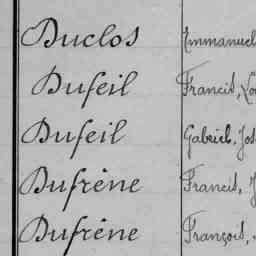 Duclos Emmanuel
Dufeil Francis, 
Dufeil Gabriel, Jos
Dufrène Francis, J
Dufrène François,